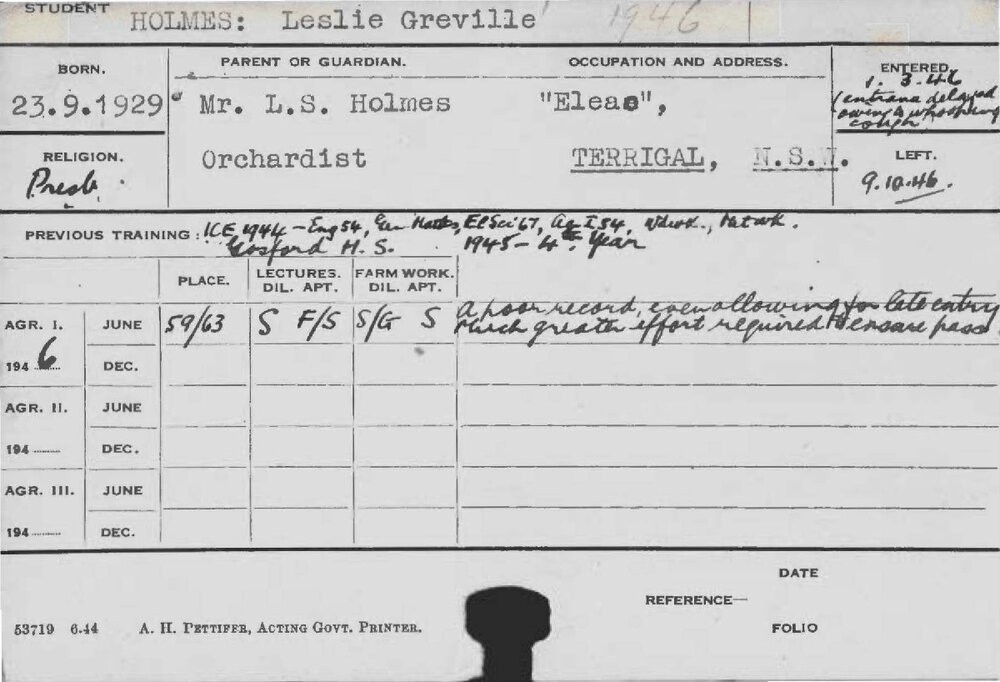 STUDENT HOLMES: Leslie Greville 1946
BORN. PARENT OR GUARDIAN. OCCUPATION AND ADDRESS. ENTERED.
23.9.1929 Mr. L.S. Holmes "Eleae", 1. 3.46
(entrance delayed
owing to whooping
cough
RELIGION. Orchardist TERRIGAL, N.S.W. LEFT.
Presb. 9.10.46.
PREVIOUS TRAINING: ICE, 1944 - Eng 54, Gen Maths, El Sci 67, Ag I 54, Wdwk., Metwk.
Gosford H. S. 1945 - 4th Year
PLACE. LECTURES. DIL. APT. FARM WORK. DIL. APT.
AGR. I. JUNE 59/63 S F/S S/G S A poor record, even allowing for late entry
Much greater effort required to ensure pass
1946 DEC.
AGR. II. JUNE
194 DEC.
AGR. III. JUNE
194 DEC.
DATE
REFERENCE—
53719 6.44 A. H. PETTIFER, ACTING GOVT. PRINTER. FOLIO